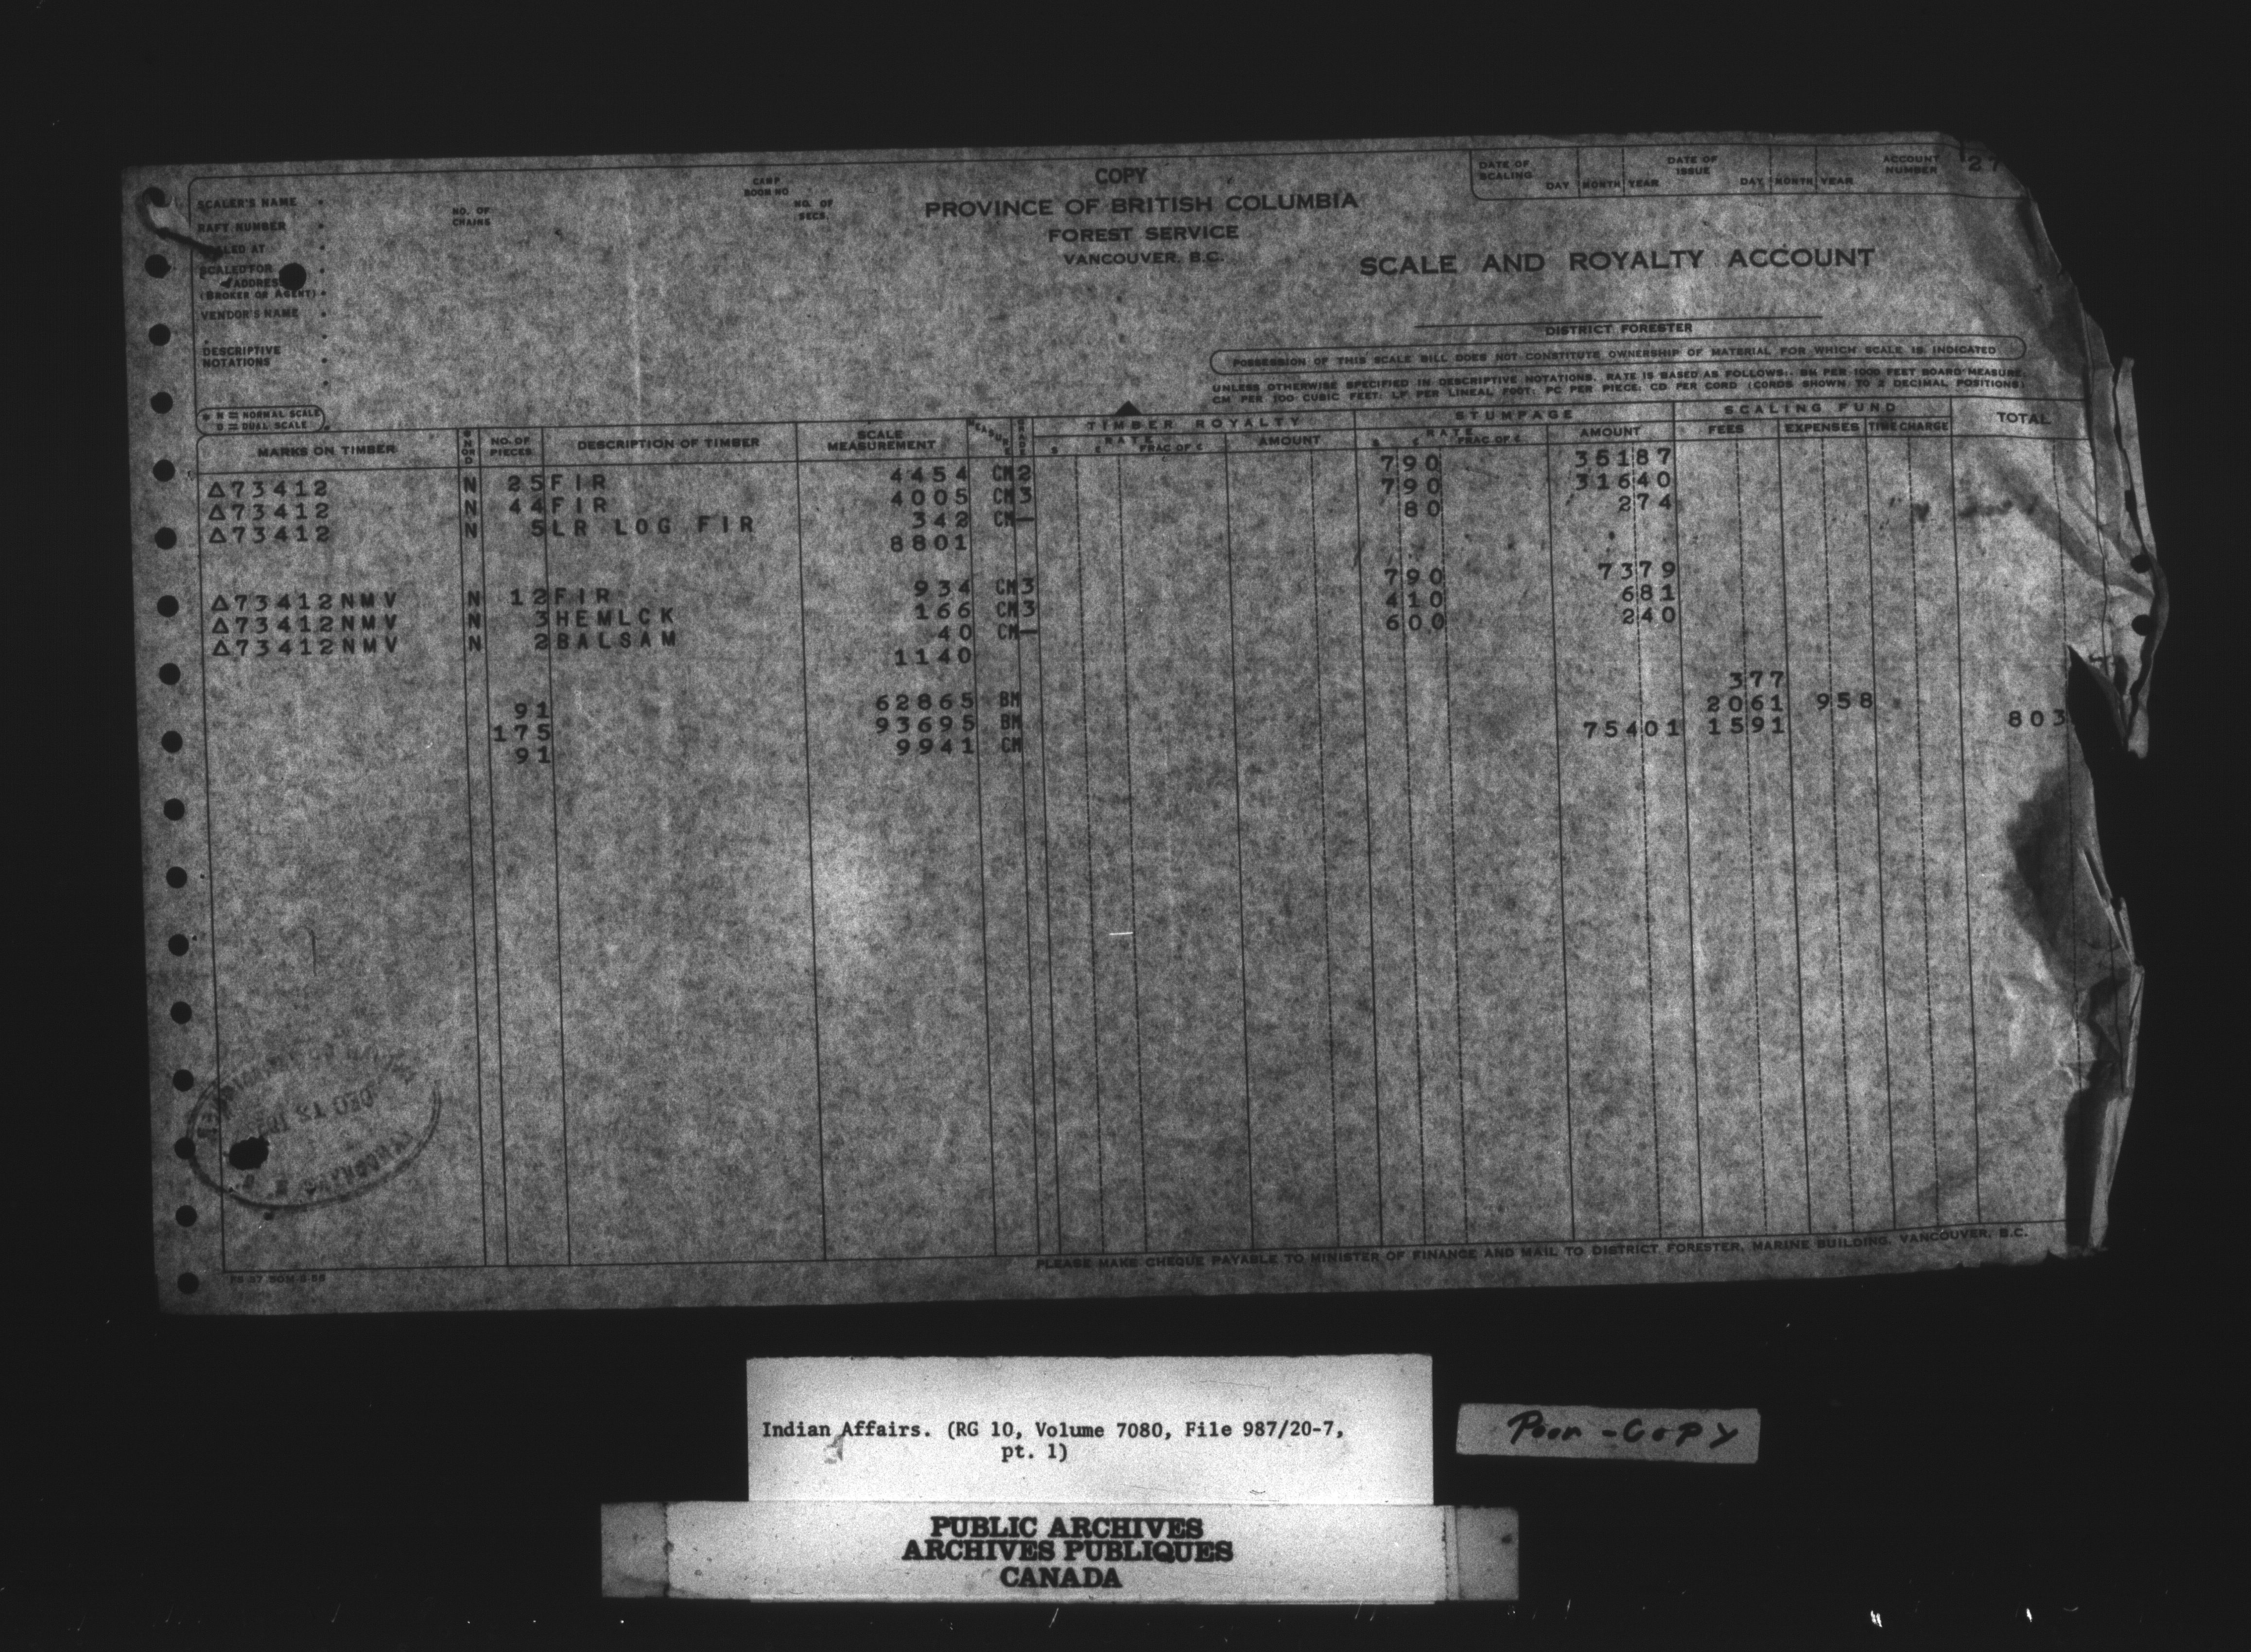 COPY
PROVINCE OF BRITISH COLUMBIA
FOREST SERVICE
VANCOUVER, B.C.
SCALE AND ROYALTY ACCOUNT
DATE OF SCALING DAY MONTH YEAR DATE OF ISSUE DAY MONTH YEAR ACCOUNT NUMBER 27
SCALER'S NAME
NO. OF CHAINS
CAMP BOOM NO
NO. OF SECS.
RAFT NUMBER
SCALED AT
SCALED FOR
ADDRESS
(BROKER OR AGENT)
VENDOR'S NAME
DESCRIPTIVE NOTATIONS
DISTRICT FORESTER
POSSESSION OF THIS SCALE BILL DOES NOT CONSTITUTE OWNERSHIP OF MATERIAL FOR WHICH SCALE IS INDICATED
UNLESS OTHERWISE SPECIFIED IN DESCRIPTIVE NOTATIONS, RATE IS BASED AS FOLLOWS:. BM PER 1000 FEET BOARD MEASURE;
CM PER 100 CUBIC FEET; LF PER LINEAL FOOT; PC PER PIECE; CD PER CORD (CORDS SHOWN TO 2 DECIMAL POSITIONS)
N = NORMAL SCALE
D = DUAL SCALE
MARKS ON TIMBER N OR D NO. OF PIECES DESCRIPTION OF TIMBER SCALE MEASUREMENT MEASURE GRADE TIMBER ROYALTY STUMPAGE SCALING FUND TOTAL
$ ¢ RATE FRAC OF ¢ AMOUNT $ ¢ RATE FRAC OF ¢ AMOUNT FEES EXPENSES TIME CHARGE
△73412 N 25 FIR 4454 CM 2 790 35187
△73412 N 44 FIR 4005 CM 3 790 31640
△73412 N 5 LR LOG FIR 342 CM — 80 274
8801
△73412NMV N 12 FIR 934 CM 3 790 7379
△73412NMV N 3 HEMLCK 166 CM 3 410 681
△73412NMV N 2 BALSAM 40 CM — 600 240
1140
91 62865 BM 377
175 93695 BM 2061 958
91 9941 CM 75401 1591 803
DEC 13
PLEASE MAKE CHEQUE PAYABLE TO MINISTER OF FINANCE AND MAIL TO DISTRICT FORESTER, MARINE BUILDING, VANCOUVER, B.C.
Indian Affairs. (RG 10, Volume 7080, File 987/20-7,
pt. 1)
Poor - Copy
PUBLIC ARCHIVES
ARCHIVES PUBLIQUES
CANADA